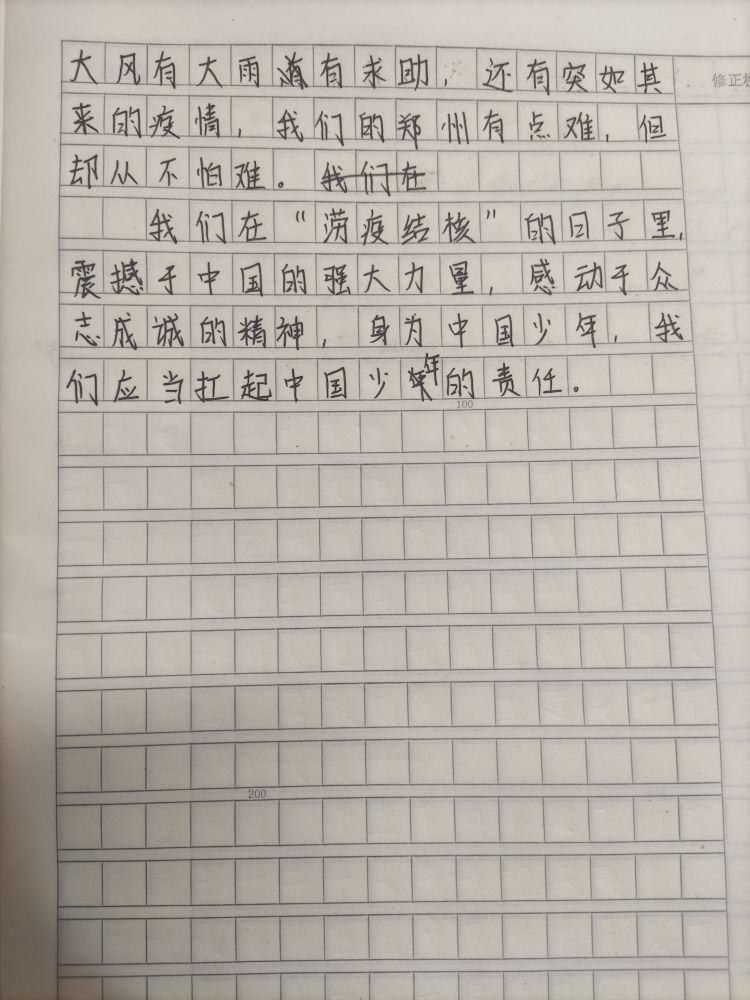 大风有大雨有求助，还有突如其
修正栏
来的疫情，我们的郑州有点难，但
却从不怕难。我们在
我们在“涝疫结核”的日子里，
震撼于中国的强大力量，感动于众
志成诚的精神，身为中国少年，我
们应当扛起中国少年的责任。
100
200